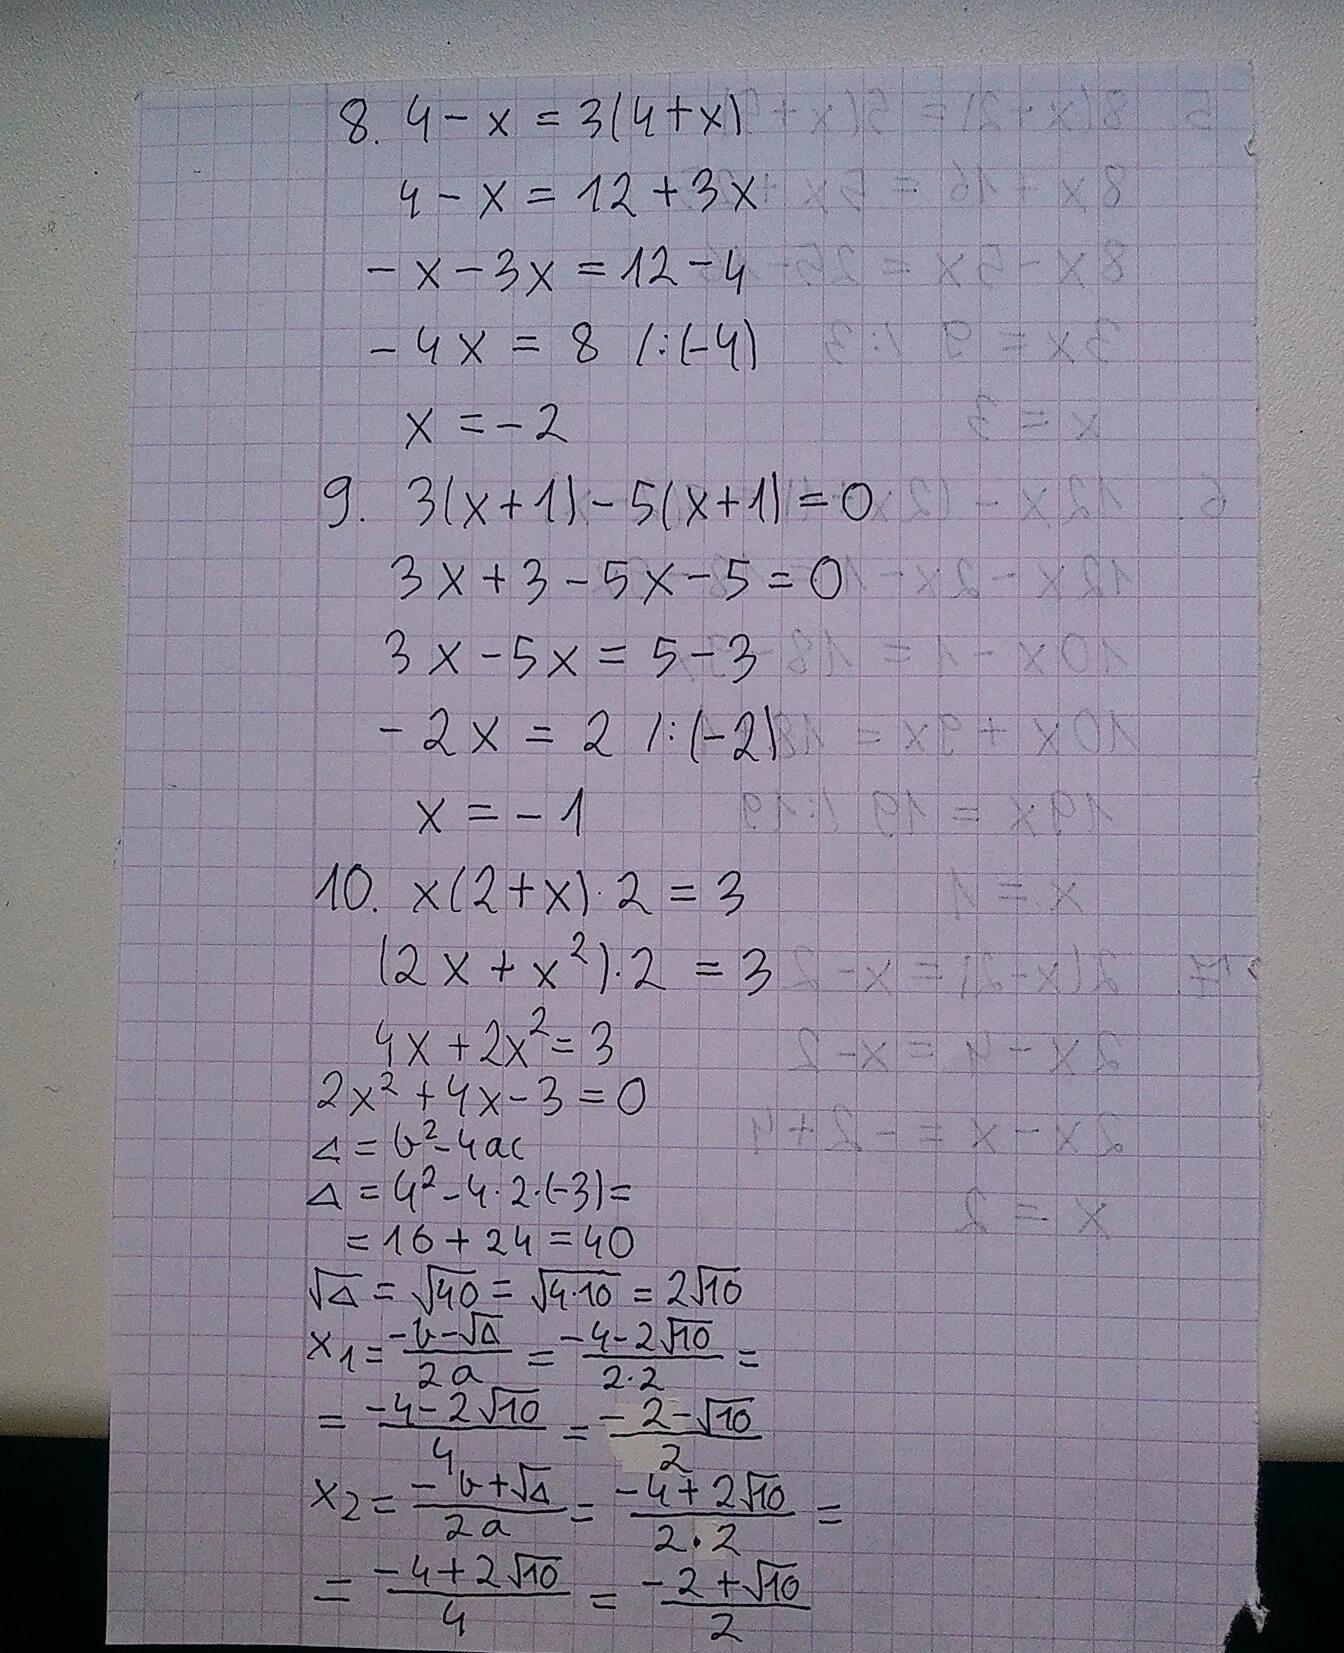 8. 4 - x = 3(4+x)
4 - x = 12 + 3x
- x - 3x = 12 - 4
- 4x = 8 /:(-4)
x = - 2
9. 3(x+1) - 5(x+1) = 0
3x + 3 - 5x - 5 = 0
3x - 5x = 5 - 3
- 2x = 2 /:(-2)
x = - 1
10. x(2+x)·2 = 3
(2x + x²)·2 = 3
4x + 2x² = 3
2x² + 4x - 3 = 0
Δ = b² - 4ac
Δ = 4² - 4·2·(-3) =
= 16 + 24 = 40
√Δ = √40 = √4·10 = 2√10
x₁ = (-b-√Δ)/2a = (-4-2√10)/2·2 =
= (-4-2√10)/4 = (-2-√10)/2
x₂ = (-b+√Δ)/2a = (-4+2√10)/2·2 =
= (-4+2√10)/4 = (-2+√10)/2